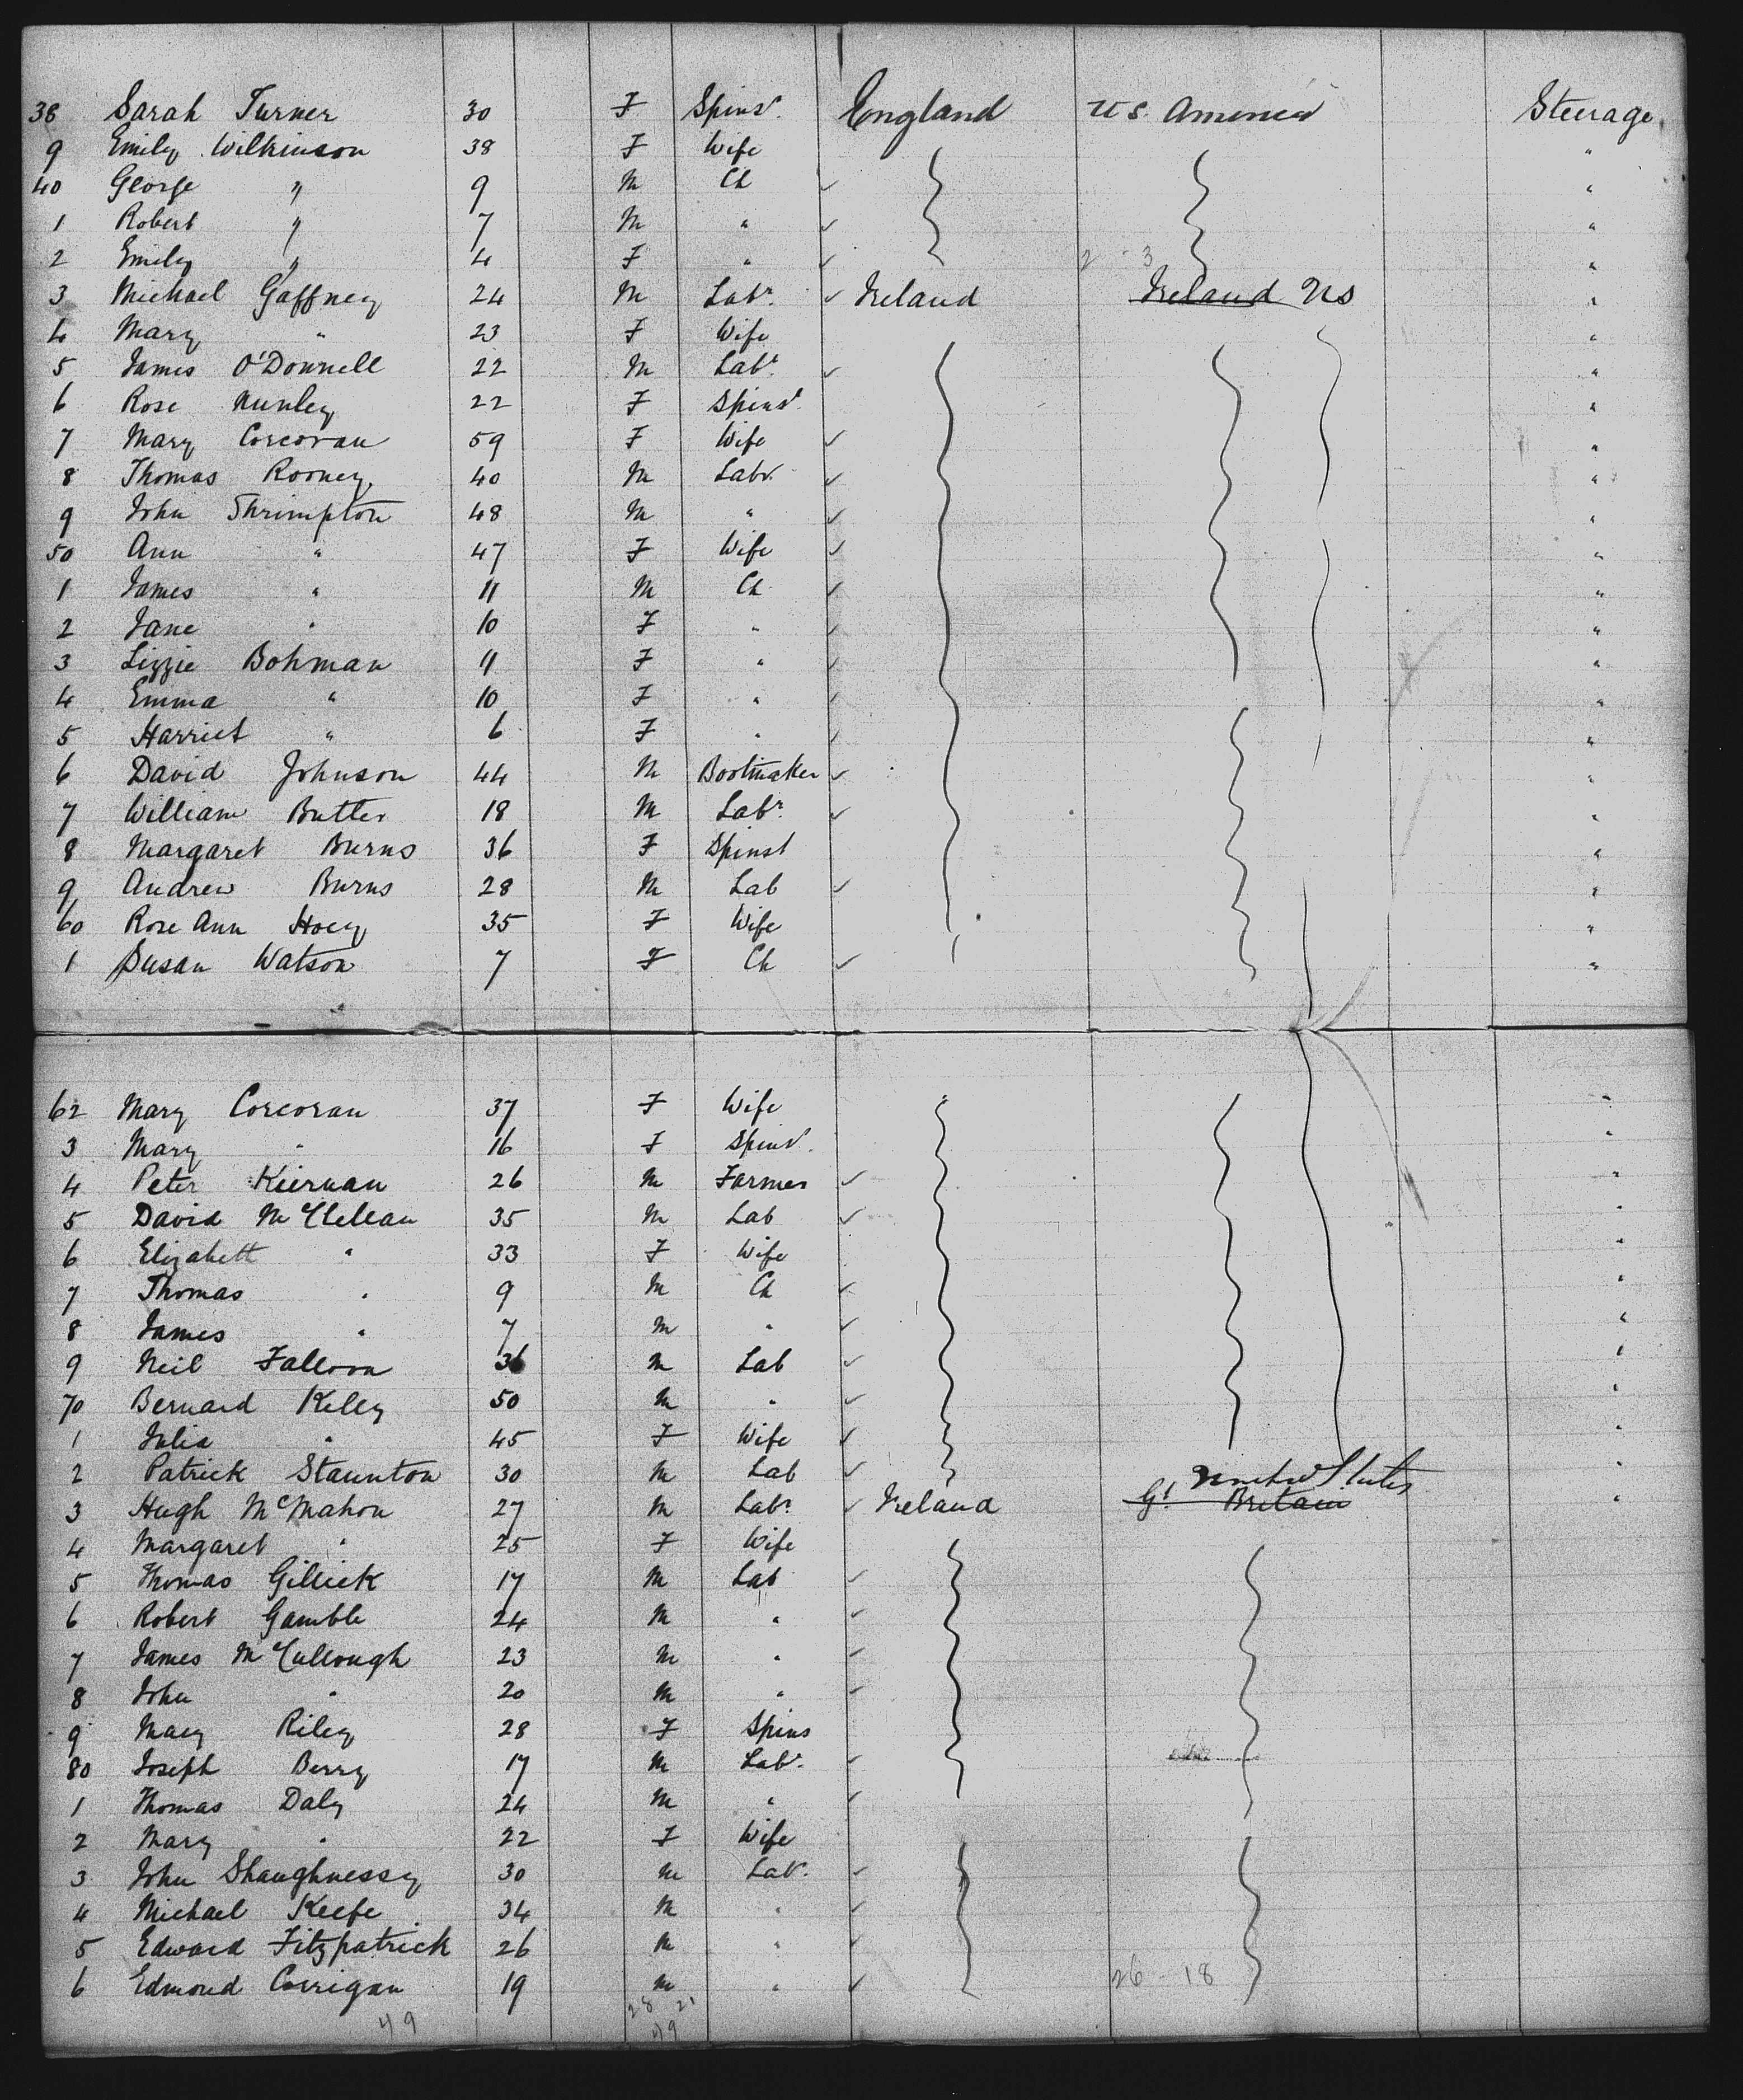 38 Sarah Turner 30 F Spinsr. England U S. America Steerage
9 Emily Wilkinson 38 F Wife "
40 George " 9 M Ch "
1 Robert " 7 M " "
2 Emily " 4 F " 2 - 3 "
3 Michael Gaffney 24 M Labr. Ireland Ireland US "
4 Mary " 23 F Wife "
5 James O'Donnell 22 M Labr. "
6 Rose Nunley 22 F Spinsr. "
7 Mary Corcoran 59 F Wife "
8 Thomas Rooney 40 M Labr. "
9 John Shrimpton 48 M " "
50 Ann " 47 F Wife "
1 James " 11 M Ch "
2 Jane " 10 F " "
3 Lizzie Bohman 11 F " "
4 Emma " 10 F " "
5 Harriet " 6 F " "
6 David Johnson 44 M Bootmaker "
7 William Butler 18 M Labr. "
8 Margaret Burns 36 F Spinst "
9 Andrew Burns 28 M Lab "
60 Rose Ann Hoey 35 F Wife "
1 Susan Watson 7 F Ch "
62 Mary Corcoran 37 F Wife "
3 Mary " 16 F Spinsr. "
4 Peter Kiernan 26 M Farmer "
5 David McClellan 35 M Lab "
6 Elizabeth " 33 F Wife "
7 Thomas " 9 M Ch "
8 James " 7 M " "
9 Neil Falloon 36 M Lab "
70 Bernard Kelly 50 M " "
1 Julia " 45 F Wife "
2 Patrick Staunton 30 M Lab "
United States
3 Hugh McMahon 27 M Labr. Ireland Gt. Britain "
4 Margaret " 25 F Wife
5 Thomas Gillick 17 M Lab
6 Robert Gamble 24 M "
7 James McCullough 23 M "
8 John " 20 M "
9 Mary Riley 28 F Spins
80 Joseph Berry 17 M Labr.
1 Thomas Daly 24 M "
2 Mary " 22 F Wife
3 John Shaughnessy 30 M Labr.
4 Michael Keefe 34 M "
5 Edward Fitzpatrick 26 M "
6 Edmond Corrigan 19 M " 26 - 18
49 28 21
49